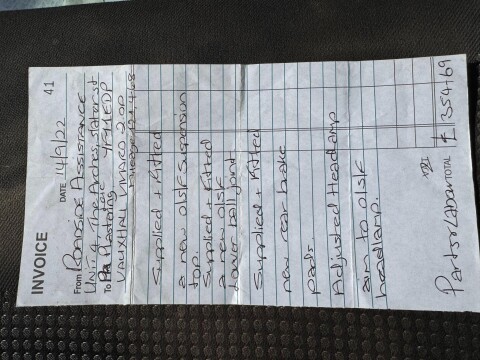 INVOICE 41
DATE 14/9/22
From Roadside Assistance
Unit 4 The Arches, slater st
To Plastering
VAUXHALL VIVARO 2.0D
Mileage
Supplied + Fitted
a new o/s/f suspension
top.
Supplied + Fitted
a new o/s/f
Lower ball joint
Supplied + Fitted
new rear brake
pads.
Adjusted Headlamp
aim to o/s/f
headlamp.
Parts/Labour TOTAL £ 354.69